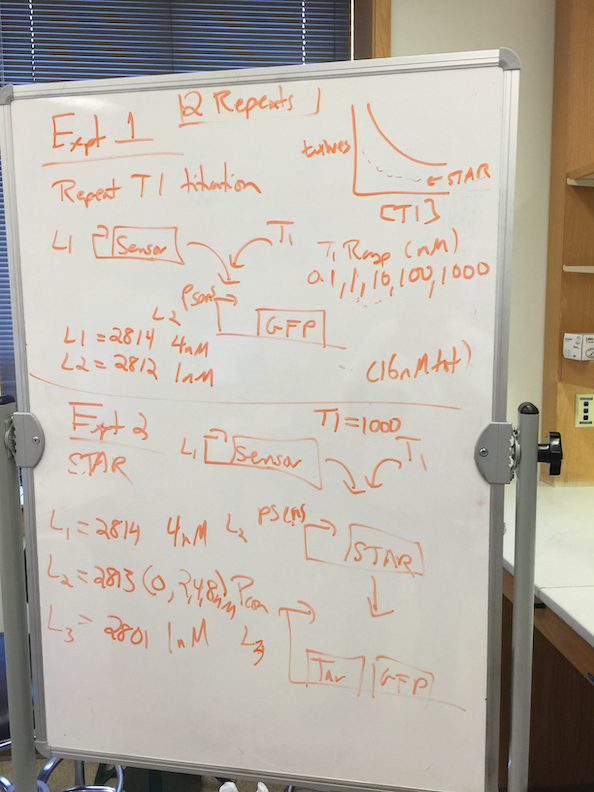 2 Repeats
Expt 1
Repeat T1 titration
← STAR
[T1]
L1 Sensor T1
T1 Range (nM)
0.1, 1, 10, 100, 1000
L2 Psens GFP
L1 = 2814 4nM
L2 = 2812 1nM
(16nM tot)
Expt 2
T1 = 1000
STAR
L1 Sensor T1
L1 = 2814 4nM L2 Psens STAR
L2 = 2813 (0, 2,4,8) nM Pcon
L3 = 2801 1nM L3
Tar GFP